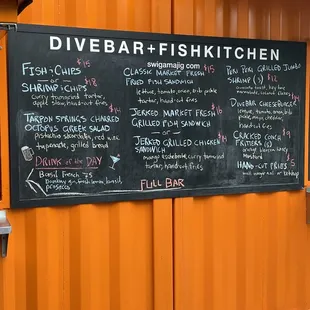 DIVEBAR+FISHKITCHEN
swigamajig.com
FISH+CHIPS $15
or
SHRIMP+CHIPS $18
curry tamarind tartar,
apple slaw, hand-cut fries
TARPON SPRINGS CHARRED
OCTOPUS GREEK SALAD
red wine
tapenade, grilled bread
DRINK OF THE DAY
BASIL FRENCH 75
basil,
prosecco
CLASSIC MARKET FRESH $15
FRIED FISH SANDWICH
lettuce, tomato, onion, dill pickle
tartar, hand-cut fries
JERKED MARKET FRESH $16
GRILLED FISH SANDWICH
or
JERKED GRILLED CHICKEN $14
SANDWICH
mango escabeche, curry tamarind
tartar, hand-cut fries
FULL BAR
PERI PERI GRILLED JUMBO
SHRIMP (5) $12
DIVEBAR CHEESEBURGER
lettuce, tomato, onion, dill
pickle, mayo, cheddar,
hand-cut fries
CRACKED CONCH $9
FRITTERS (5)
mustard
HAND-CUT FRIES $5
or ketchup